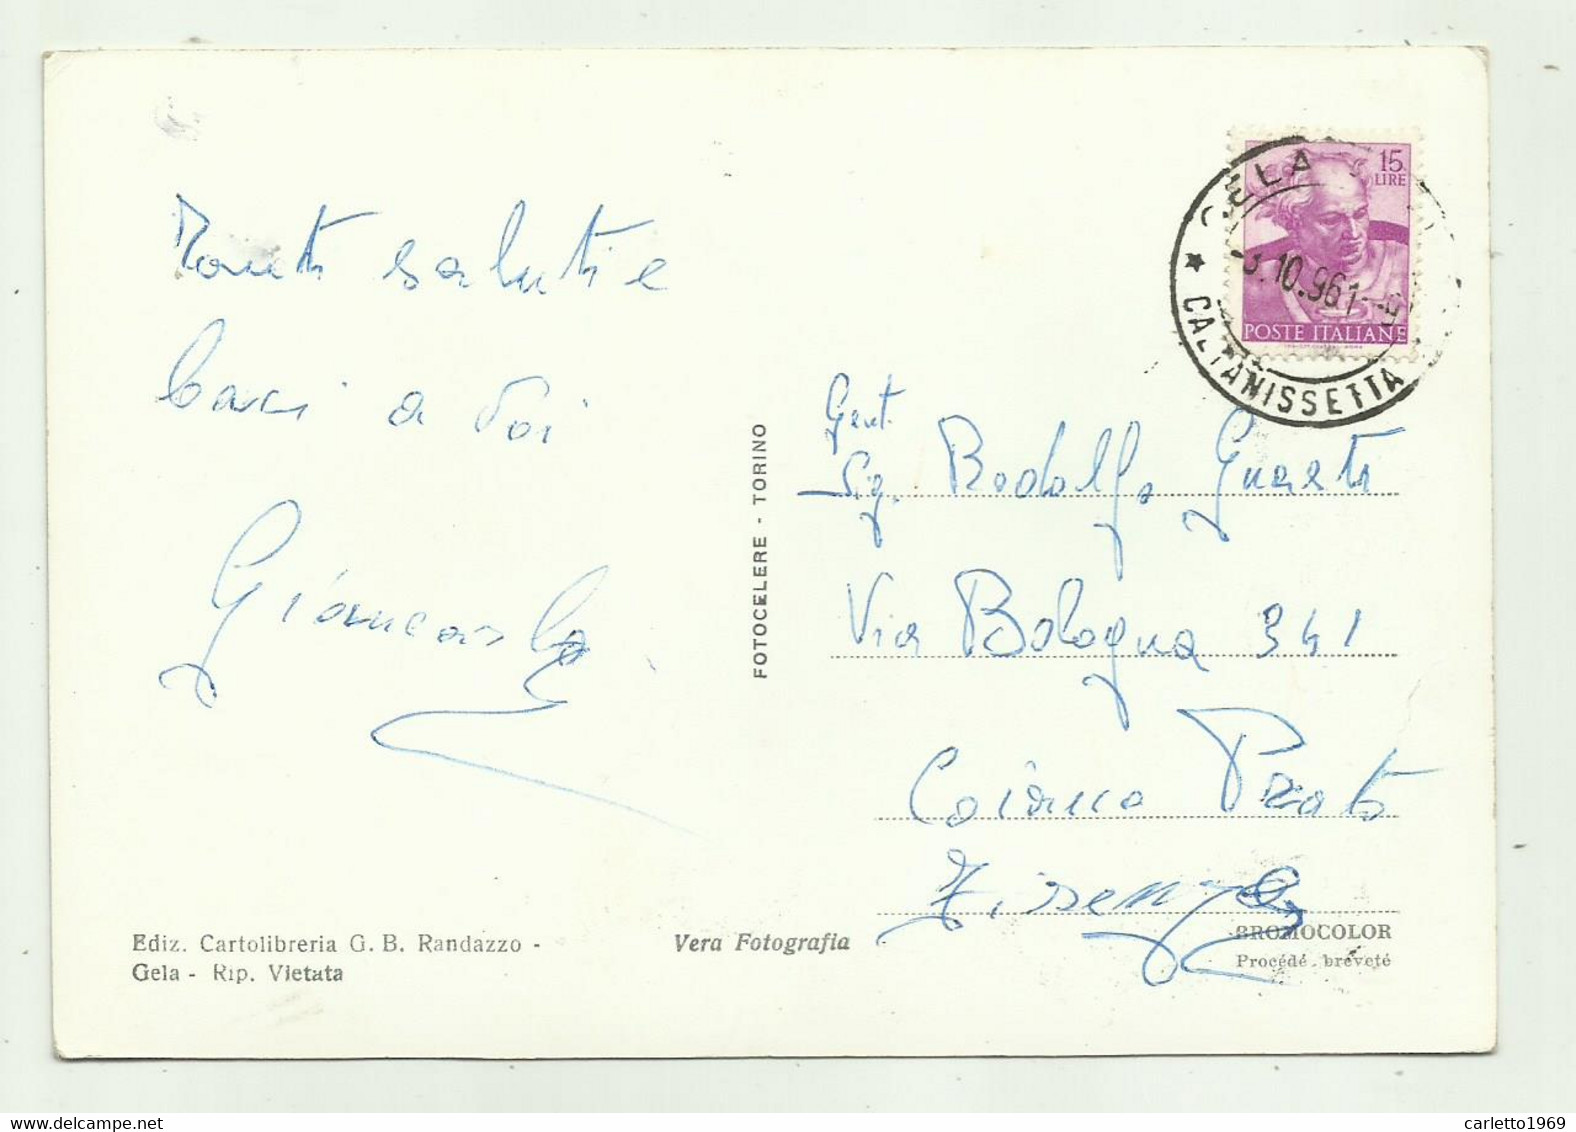 saluti e
baci a Voi
Giancarlo
Ediz. Cartolibreria G. B. Randazzo -
Gela - Rip. Vietata
Vera Fotografia
FOTOCELERE - TORINO
15
LIRE
POSTE ITALIANE
GELA
3.10.961
★ CALTANISSETTA
Gent.
Sig. Rodolfo Guasti
Via Bologna 341
Coiano Prato
Firenze
BROMOCOLOR
Procédé breveté
carletto1969